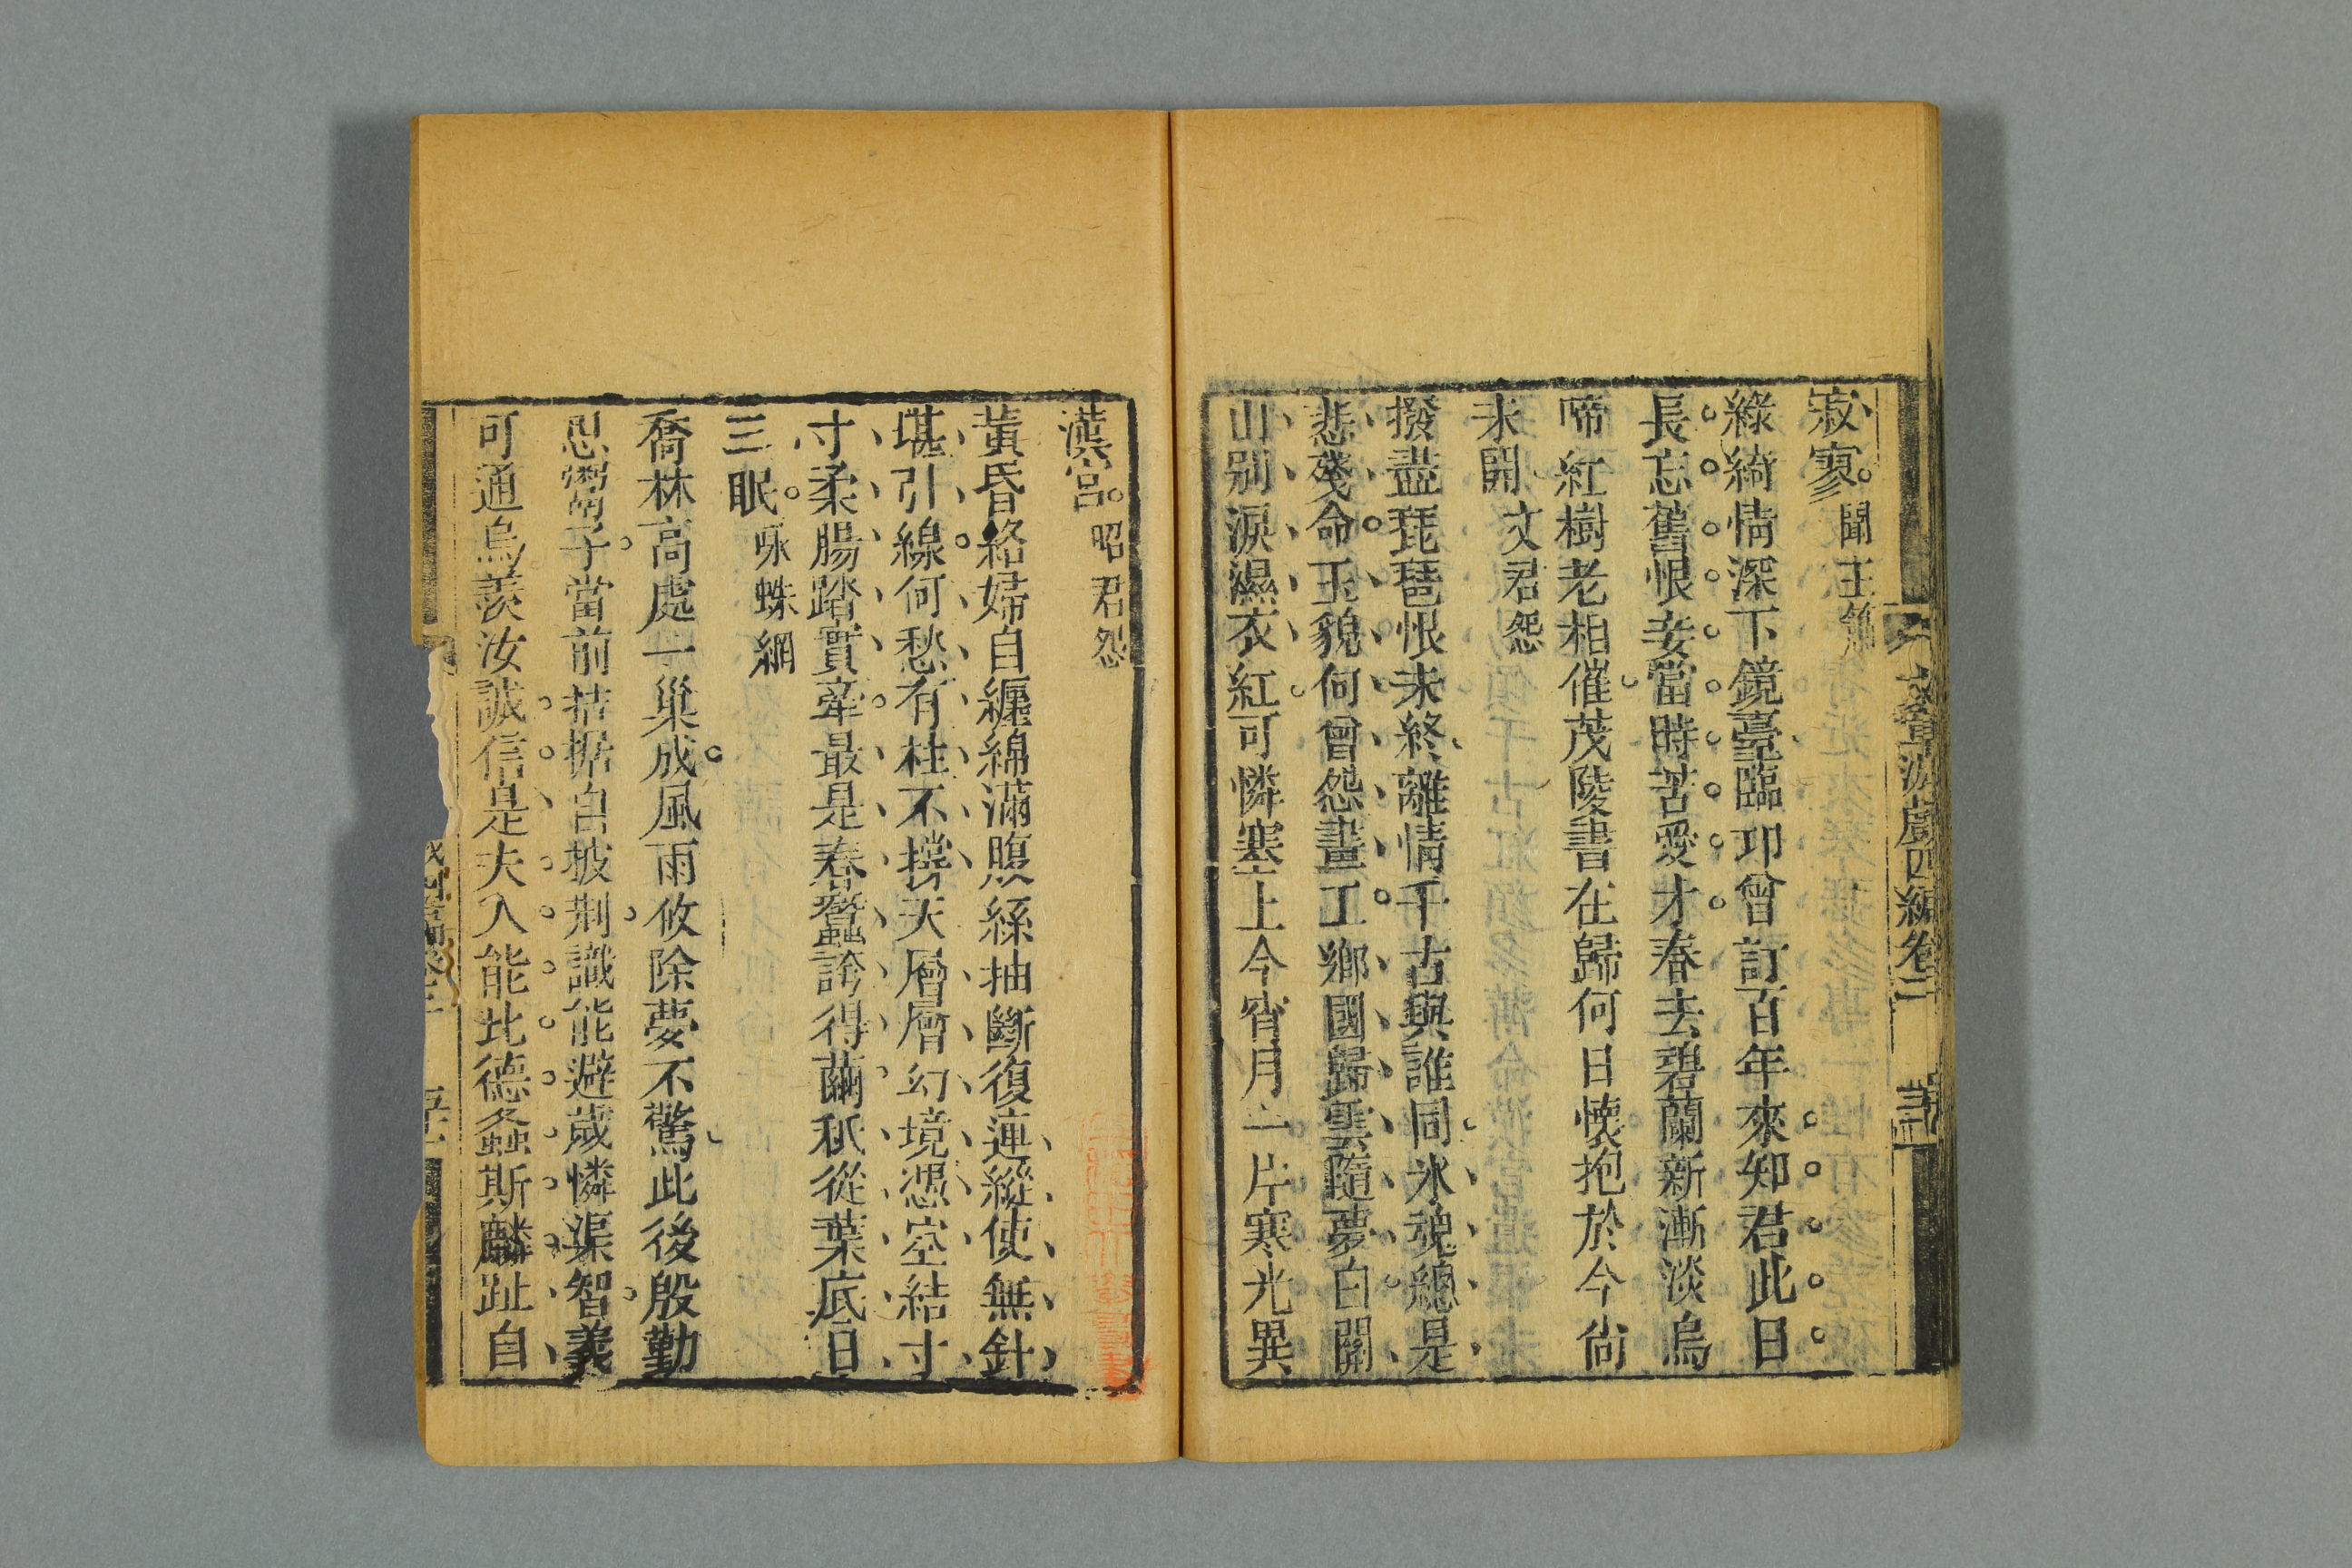 文章游戲四編卷二
寂寥。聞玉簫
綠綺情深下鏡臺臨邛曾訂百年來知君此日
長忘舊恨妾當時苦愛才春去碧蘭新漸淡烏
啼紅樹老相催茂陵書在歸何日懷抱於今尙
未開 文君怨
撥盡琵琶恨未終離情千古與誰同氷魂總是
悲殘命玉貌何曾怨畫工鄉國歸雲隨夢白關
山別淚濕衣紅可憐塞上今宵月一片寒光異
漢宮。昭君怨
黃昏絡婦自纏綿滿腹絲抽斷復連縱使無針
堪引線何愁有柱不撐天層層幻境憑空結寸
寸柔腸踏實牽最是春蠶誇得繭秖從葉底日
三眠。咏蛛網
喬林高處一巢成風雨攸除夢不驚此後殷勤
恩鬻子當前拮据自披荆識能避歲憐渠智義
可通烏羨汝誠信是夫人能比德螽斯麟趾自